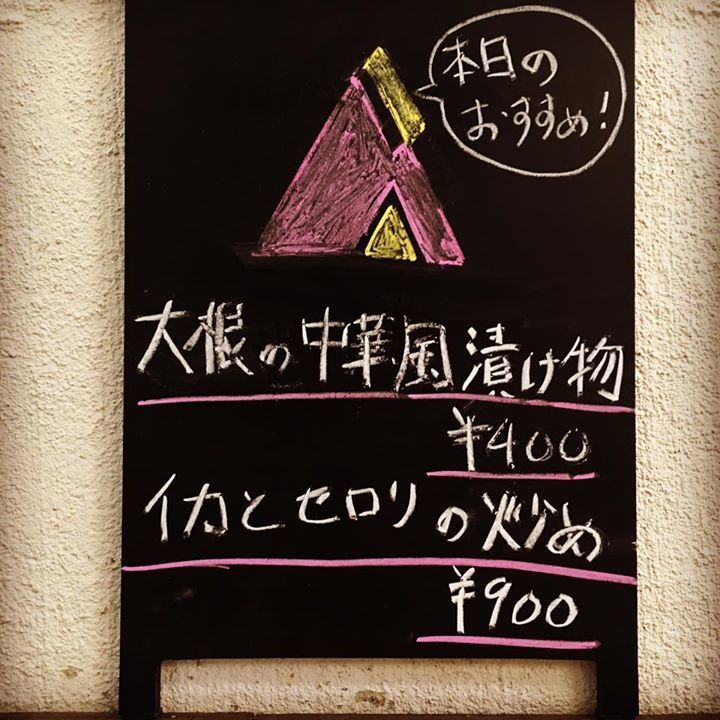 本日の
おすすめ!
大根の中華風漬け物
¥400
イカとセロリの炒め
¥900